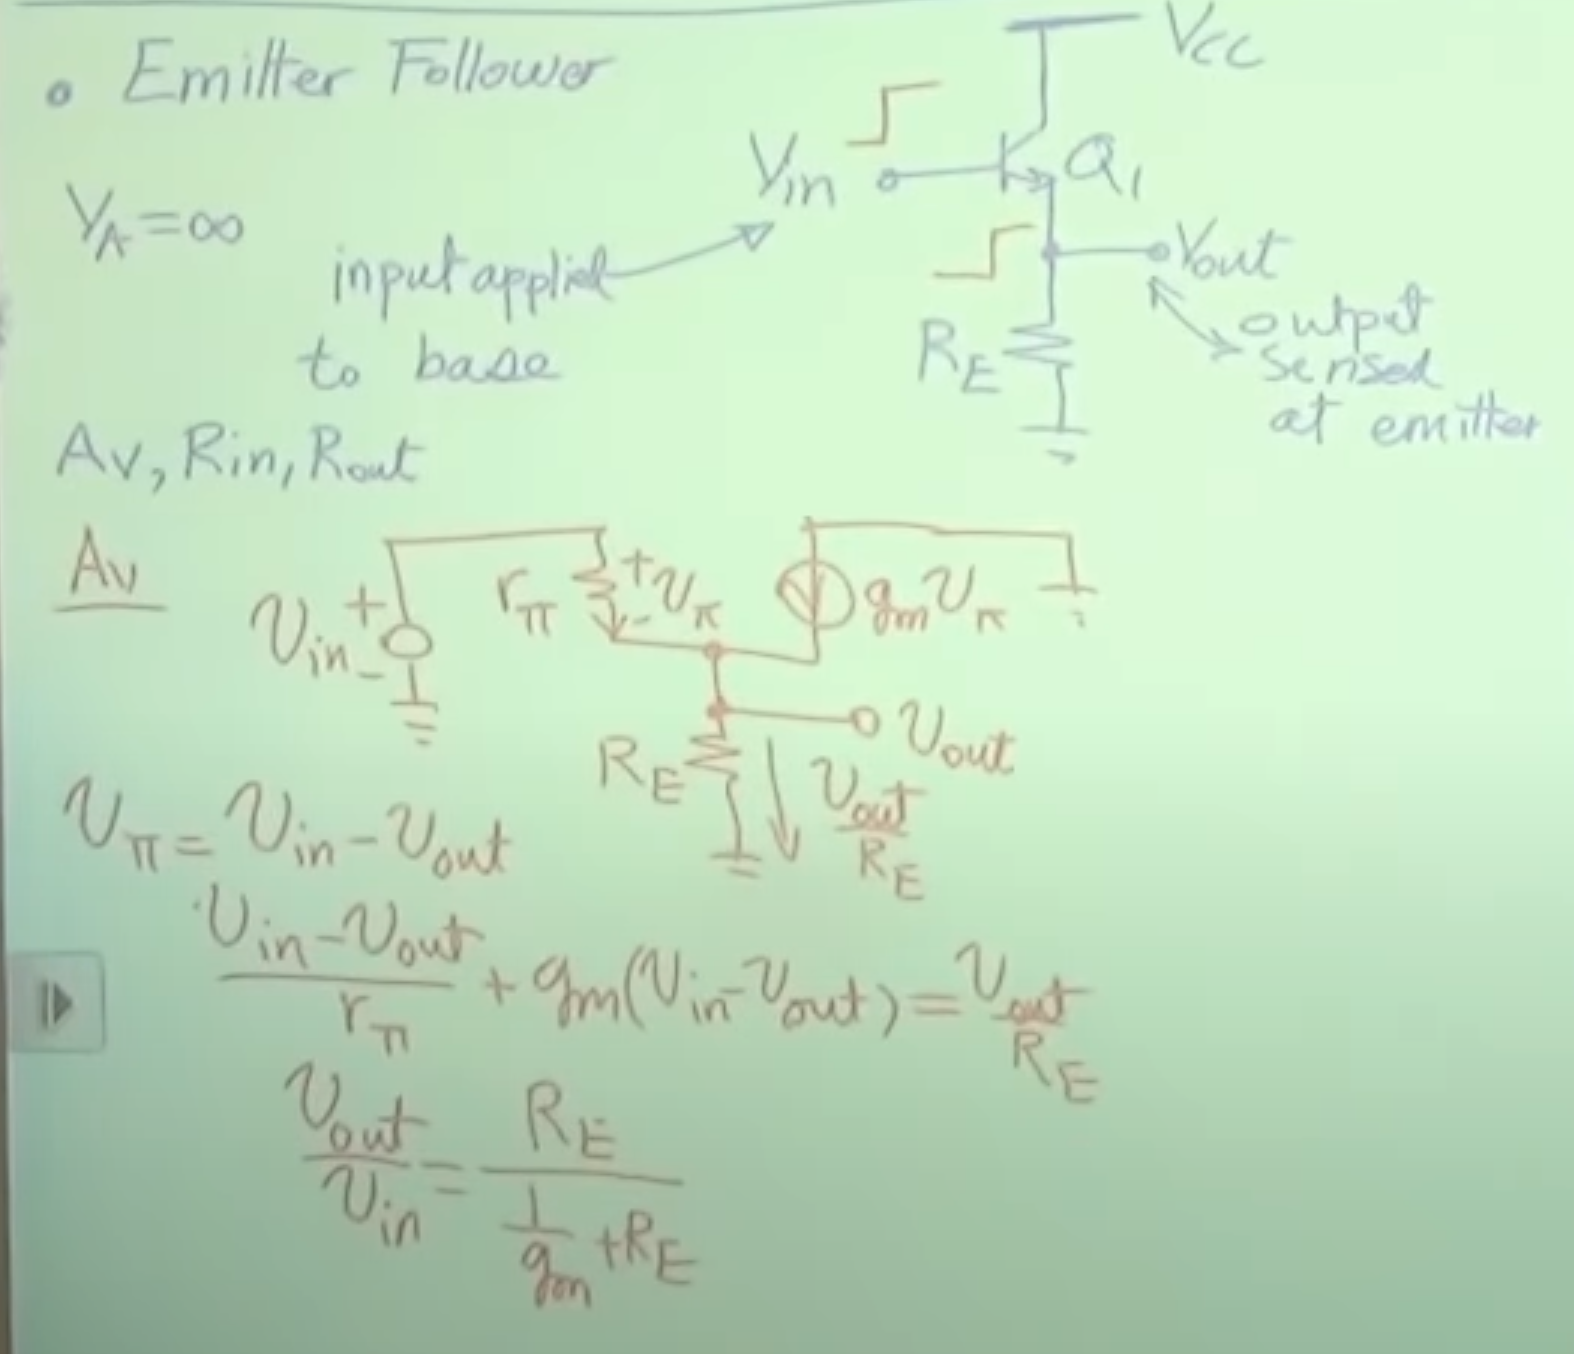 • Emitter Follower
Vcc
Vin
Q1
VA=∞
input applied
to base
Vout
output
sensed
at emitter
RE
Av, Rin, Rout
Av
vin
+
-
rπ
+
vπ
-
gmvπ
RE
vout
vout/RE
vπ=vin-vout
(vin-vout)/rπ + gm(vin-vout)=vout/RE
vout/vin=RE/(1/gm+RE)